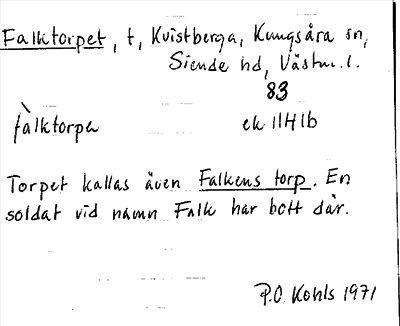 Falktorpet, t, Kvistberga, Kungsåra sn,
Siende hd, Västm. l.
83
fàlktorpa ek 11H1b
Torpet kallas även Falkens torp. En
soldat vid namn Falk har bott där.
P.O. Kohls 1971